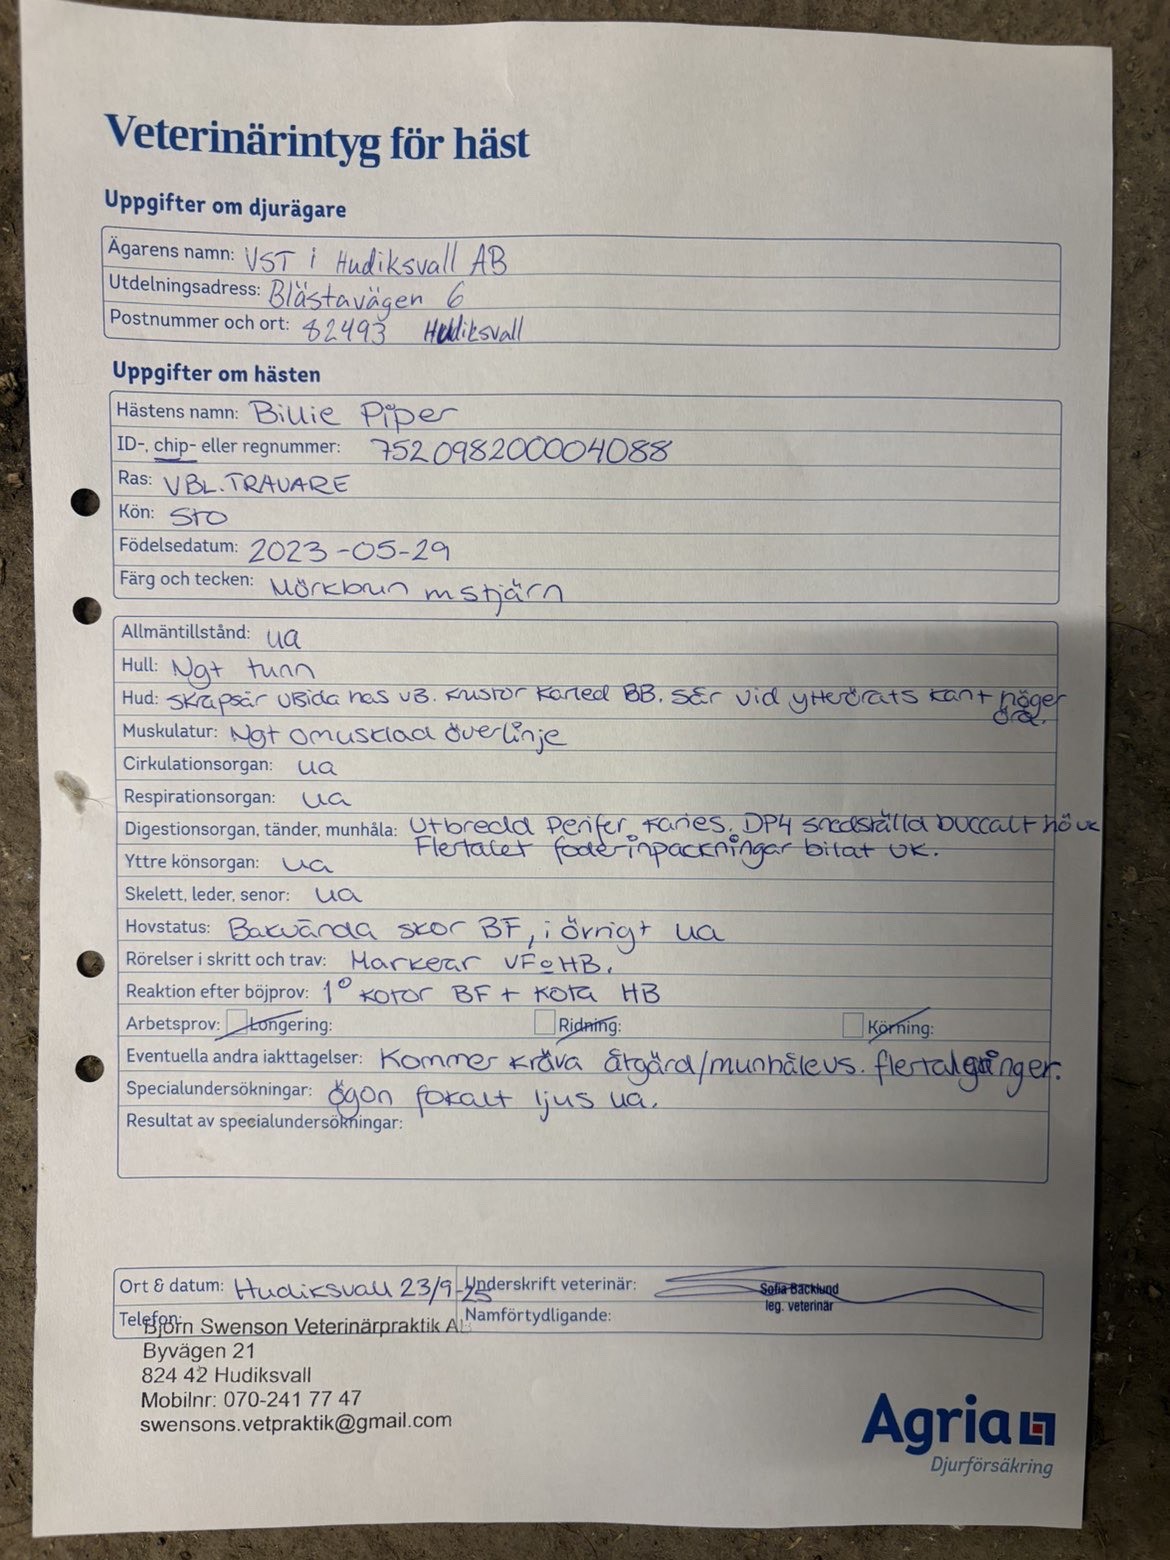 Veterinärintyg för häst
Uppgifter om djurägare
Ägarens namn: VST i Hudiksvall AB
Utdelningsadress: Blästavägen 6
Postnummer och ort: 82493 Hudiksvall
Uppgifter om hästen
Hästens namn: Billie Piper
ID-, chip- eller regnummer: 752098200004088
Ras: VBL.TRAVARE
Kön: Sto
Födelsedatum: 2023-05-29
Färg och tecken: Mörkbrun m stjärn
Allmäntillstånd: ua
Hull: Ngt tunn
Hud: Skrapsår vsida has VB. Krustor karled BB. Sår vid ytterörats kant höger
öra.
Muskulatur: Ngt omusklad överlinje
Cirkulationsorgan: ua
Respirationsorgan: ua
Digestionsorgan, tänder, munhåla: Utbredd perifer karies. DP4 snedställda buccalt hö UK
Flertalet foderinpackningar bilat UK.
Yttre könsorgan: ua
Skelett, leder, senor: ua
Hovstatus: Bakvända skor BF, i övrigt ua
Rörelser i skritt och trav: Markerar VF o HB.
Reaktion efter böjprov: 1° kotor BF + kota HB
Arbetsprov: Longering: Ridning: Körning:
Eventuella andra iakttagelser: Kommer kräva åtgärd/munhåleus. flertal gånger.
Specialundersökningar: ögon fokalt ljus ua.
Resultat av specialundersökningar:
Ort & datum: Hudiksvall 23/9-25 Underskrift veterinär: Sofia Bäcklund
leg. veterinär
Telefon: Namförtydligande:
Björn Swenson Veterinärpraktik AB
Byvägen 21
824 42 Hudiksvall
Mobilnr: 070-241 77 47
swensons.vetpraktik@gmail.com
Agria
Djurförsäkring